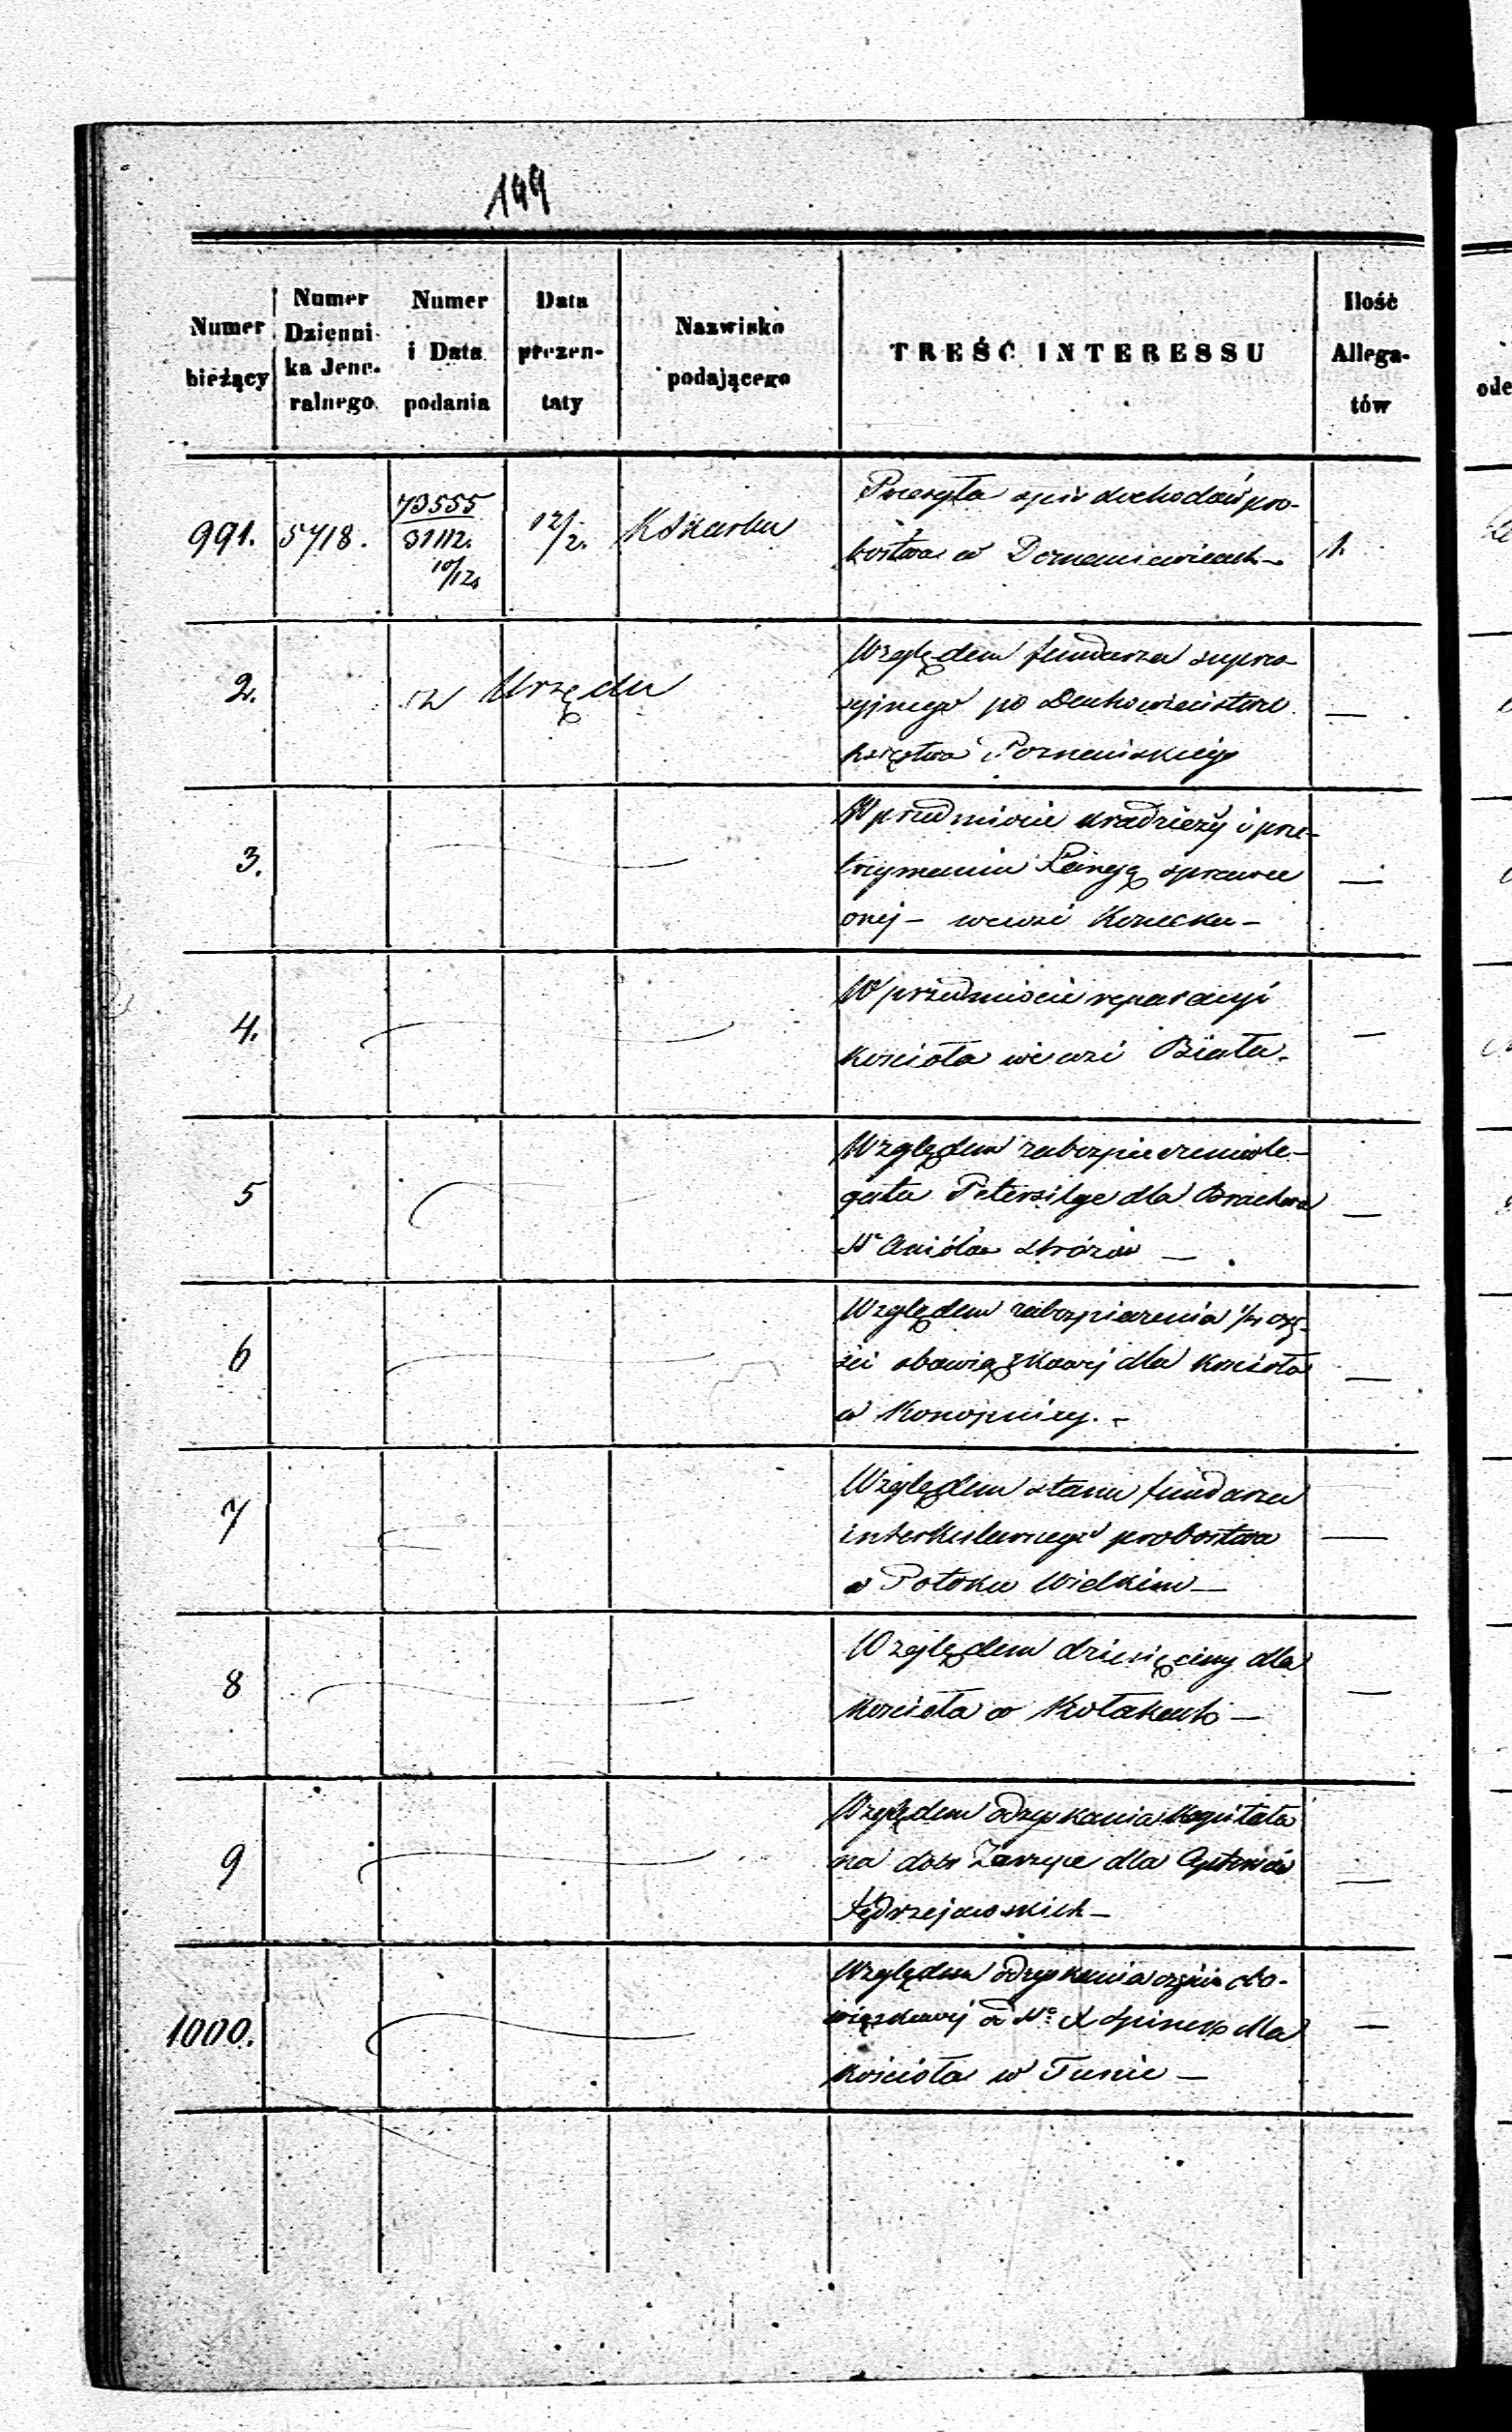 199
Numer bieżący
Numer Dzienni- ka Jene- ralnego
Numer i Data podania
Data prezen- taty
Nazwisko podającego
TREŚĆ INTERESSU
Ilość Allega- tów
991. 5718. 73555 / 31112. 10/12. 12/2. K Skarbu
Przesyła spis dochodów pro-
bostwa w Domaniewicach – 1.
2. z Urzędu
Względem funduszu supres-
syjnego po Duchowieństwie —
księstwa Poznańskiego
3.
W przedmiocie kradzieży i przy-
trzymaniu sprawcę —
onej – we wsi Konecka –
4.
W przedmiocie reparacyi —
kościoła we wsi Biała.
5
Względem zabezpieczenia le-
gatu Petersilge dla Bractwa —
Sº Anióła Stróża —
6
Względem zabezpieczenia czę-
ści obowiązkowej dla kościoła —
w Konopnicy. –
7
Względem stanu funduszu
interkalarnego probostwa —
w Potoku Wielkim —
8
Względem dziesięciny dla —
kościoła w Kołakach —
9
Względem odzyskania kapitału
na dobr Zarzyce dla Cystersów —
Jędrzejowskich —
1000.
Względem odzyskania części obo-
wiązkowej dla —
kościoła w Tumie —
ode